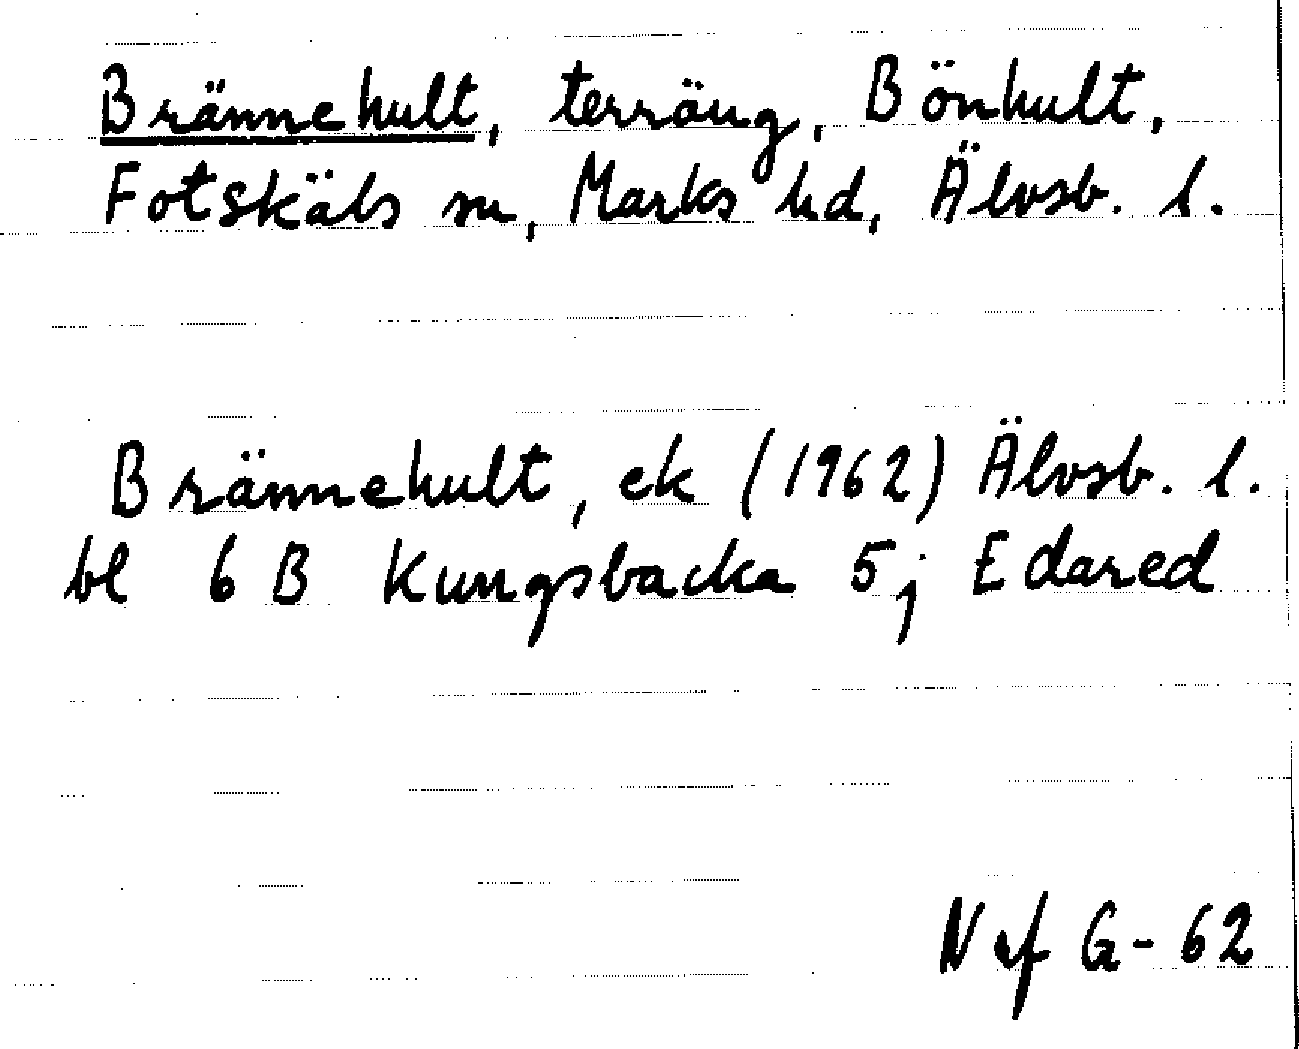 Brännehult, terräng, Bönhult,
Fotskäls sn, Marks hd, Älvsb. l.
Brännehult, ek (1962) Älvsb. l.
bl 6 B Kungsbacka 5j Edared
Nrf G-62